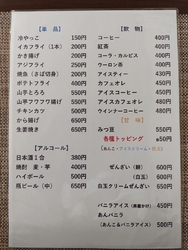 【単 品】
冷やっこ 150円
イカフライ(1本) 200円
かき揚げ 200円
アジフライ 250円
焼魚(さば切身) 200円
ポテトフライ 350円
山芋とろろ 550円
山芋フワフワ揚げ 550円
チキンカツ 500円
から揚げ 650円
生姜焼き 650円
【アルコール】
日本酒1合 380円
焼酎 麦・芋 400円
ハイボール 500円
瓶ビール(中) 650円
【飲 物】
コーヒー 400円
紅茶 400円
コーラ・カルピス 300円
ウーロン茶 300円
アイスティー 400円
カフェオレ 450円
アイスコーヒー 450円
アイスカフェオレ 480円
ウインナーコーヒー 480円
【甘 味】
みつ豆 550円
各種トッピング +50円
(あんこ・アイスクリーム・白玉)
ぜんざい(餅) 600円
(白玉) 600円
白玉クリームぜんざい 650円
バニラアイス(黒蜜かけ) 450円
あんバニラ
(あんこ&バニラアイス) 500円